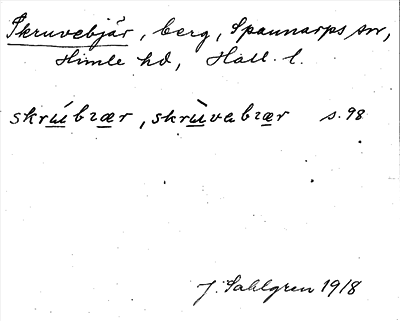 Skruvebjär, berg, Spannarps sn,
Himle hd, Hall. l.
skrúbrær, skrùvabrær s. 98
J. Sahlgren 1918